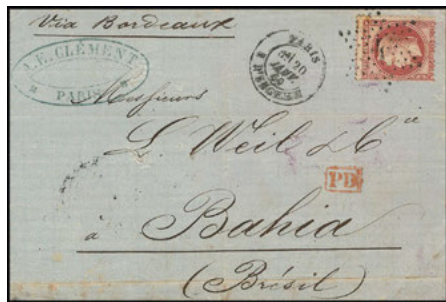 Via Bordeaux
A. E. CLÉMENT
PARIS
PARIS
20
R. D'ENGHIEN
Messieurs
L. Weil & Cie
PD
à Bahia
(Brésil)